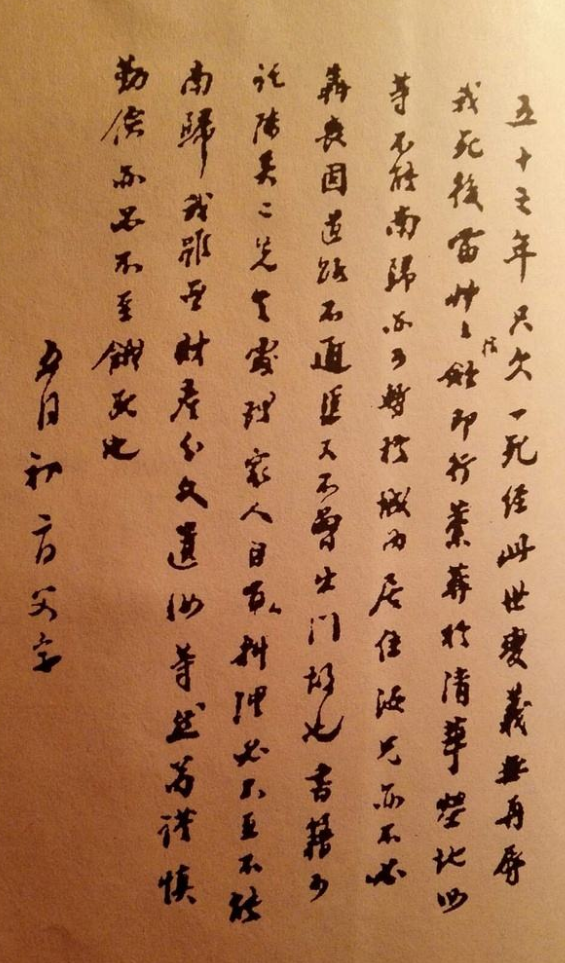 五十之年只欠一死經此世變義無再辱
我死後當草草棺斂即行藁葬於清華塋地汝
等不能南歸亦可暫於城內居住汝兄亦不必
奔喪因道路不通渠又不曾出門故也書籍可
託陳吳二先生處理家人自有人料理必不至不能
南歸我雖無財產分文遺汝等然苟謹慎
勤儉亦必不至餓死也
五月初二日父字